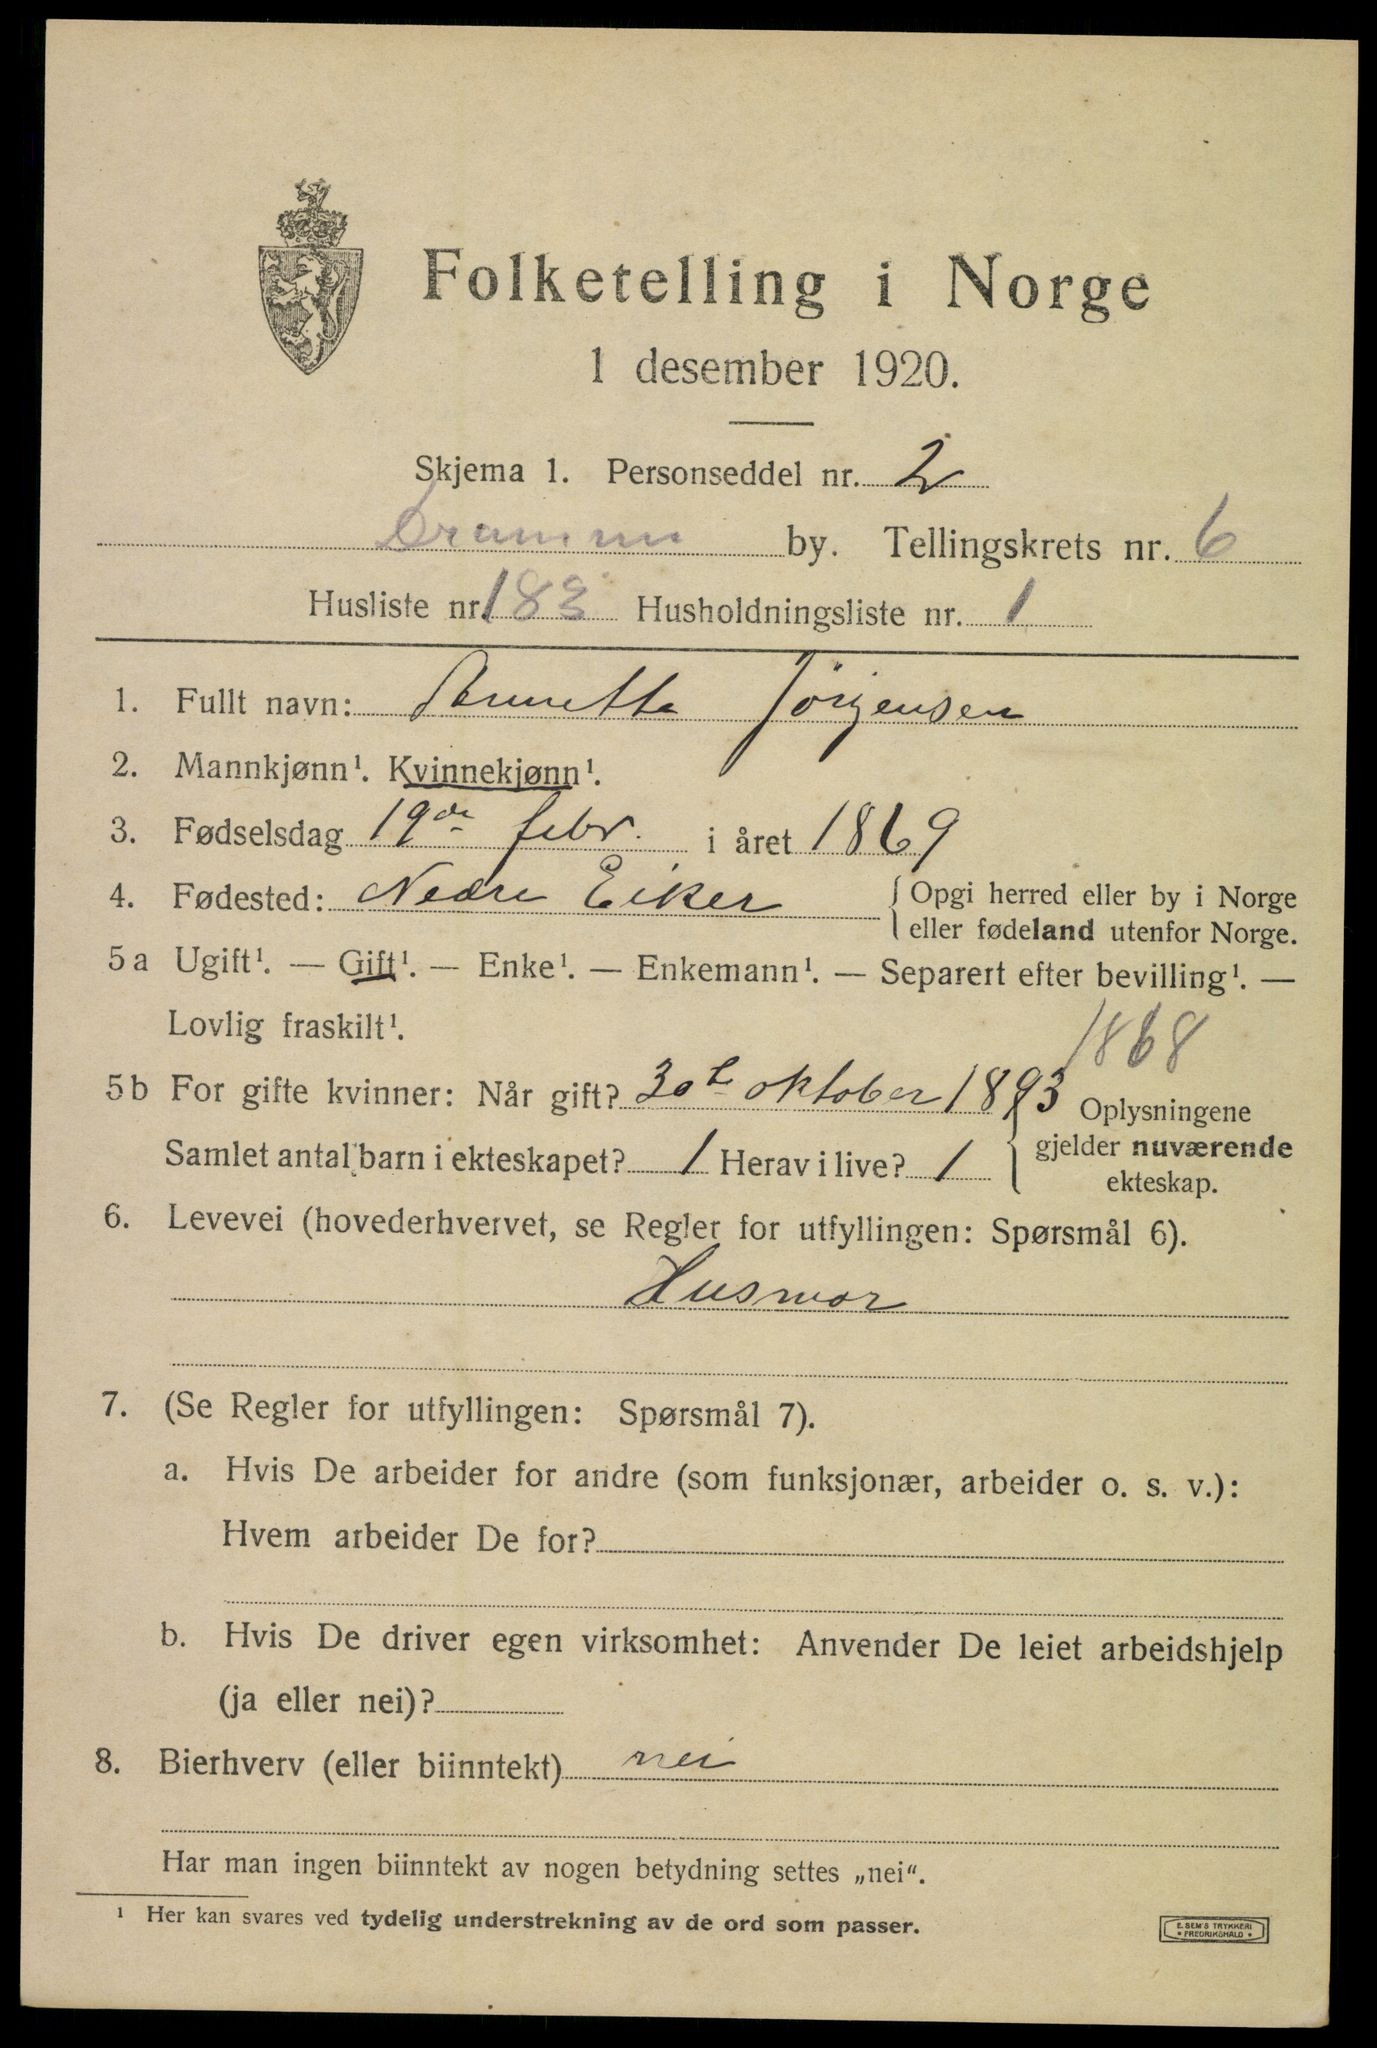 Folketelling i Norge
1 desember 1920.
Skjema 1. Personseddel nr. 2
Drammen by. Tellingskrets nr. 6
Husliste nr. 183 Husholdningsliste nr. 1
1. Fullt navn: Annette Jörgensen
2. Mannkjønn¹. Kvinnekjønn¹.
3. Fødselsdag 19de febr. i året 1869
4. Fødested: Nedre Eiker { Opgi herred eller by i Norge
eller fødeland utenfor Norge.
5 a Ugift¹. — Gift¹. — Enke¹. — Enkemann¹. — Separert efter bevilling¹. —
Lovlig fraskilt¹.
1868
5 b For gifte kvinner: Når gift? 30te oktober 1893 { Oplysningene
Samlet antal barn i ekteskapet? 1 Herav i live? 1 gjelder nuværende
ekteskap.
6. Levevei (hovederhvervet, se Regler for utfyllingen: Spørsmål 6).
Husmor
7. (Se Regler for utfyllingen: Spørsmål 7).
a. Hvis De arbeider for andre (som funksjonær, arbeider o. s. v.):
Hvem arbeider De for?
b. Hvis De driver egen virksomhet: Anvender De leiet arbeidshjelp
(ja eller nei)?
8. Bierhverv (eller biinntekt) nei
Har man ingen biinntekt av nogen betydning settes „nei“.
¹ Her kan svares ved tydelig understrekning av de ord som passer.
E. SEM'S TRYKKERI
* FREDRIKSHALD *